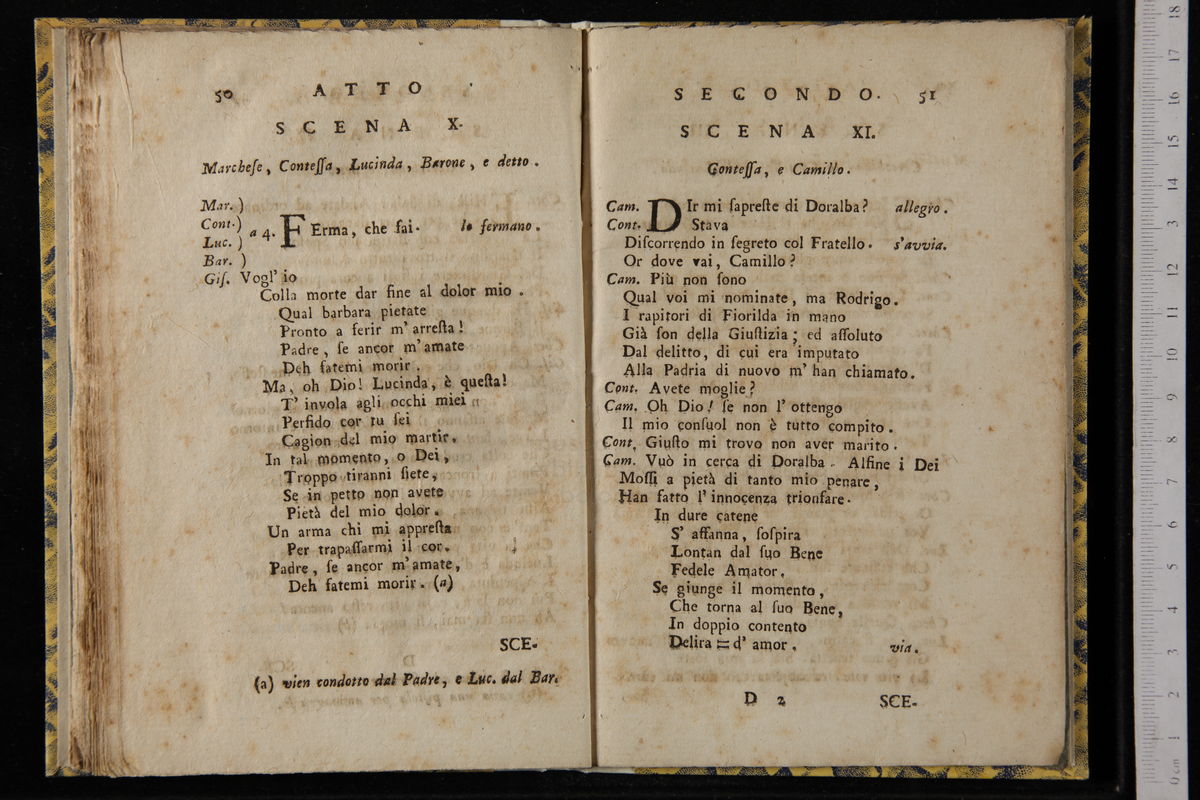 50 ATTO
SCENA X.
Marcheſe, Conteſſa, Lucinda, Barone, e detto.
Mar. )
Cont. )
Luc. ) a 4. FErma, che fai. lo fermano.
Bar. )
Giſ. Vogl' io
Colla morte dar fine al dolor mio.
Qual barbara pietate
Pronto a ferir m' arreſta!
Padre, ſe ancor m' amate
Deh fatemi morir.
Ma, oh Dio! Lucinda, è queſta!
T' invola agli occhi miei
Perfido cor tu ſei
Cagion del mio martir.
In tal momento, o Dei,
Troppo tiranni ſiete,
Se in petto non avete
Pietà del mio dolor.
Un arma chi mi appreſta
Per trapaſſarmi il cor.
Padre, ſe ancor m' amate,
Deh fatemi morir. (a)
SCE-
(a) vien condotto dal Padre, e Luc. dal Bar.
SECONDO. 51
SCENA XI.
Conteſſa, e Camillo.
Cam. DIr mi ſapreſte di Doralba? allegro.
Cont. Stava
Diſcorrendo in ſegreto col Fratello. s'avvia.
Or dove vai, Camillo?
Cam. Più non ſono
Qual voi mi nominate, ma Rodrigo.
I rapitori di Fiorilda in mano
Già ſon della Giuſtizia; ed aſſoluto
Dal delitto, di cui era imputato
Alla Padria di nuovo m' han chiamato.
Cont. Avete moglie?
Cam. Oh Dio! ſe non l' ottengo
Il mio conſuol non è tutto compito.
Cont. Giuſto mi trovo non aver marito.
Cam. Vuò in cerca di Doralba. Alfine i Dei
Moſſi a pietà di tanto mio penare,
Han fatto l' innocenza trionfare.
In dure catene
S' affanna, ſoſpira
Lontan dal ſuo Bene
Fedele Amator.
Se giunge il momento,
Che torna al ſuo Bene,
In doppio contento
Delira = d' amor. via.
D 2 SCE-